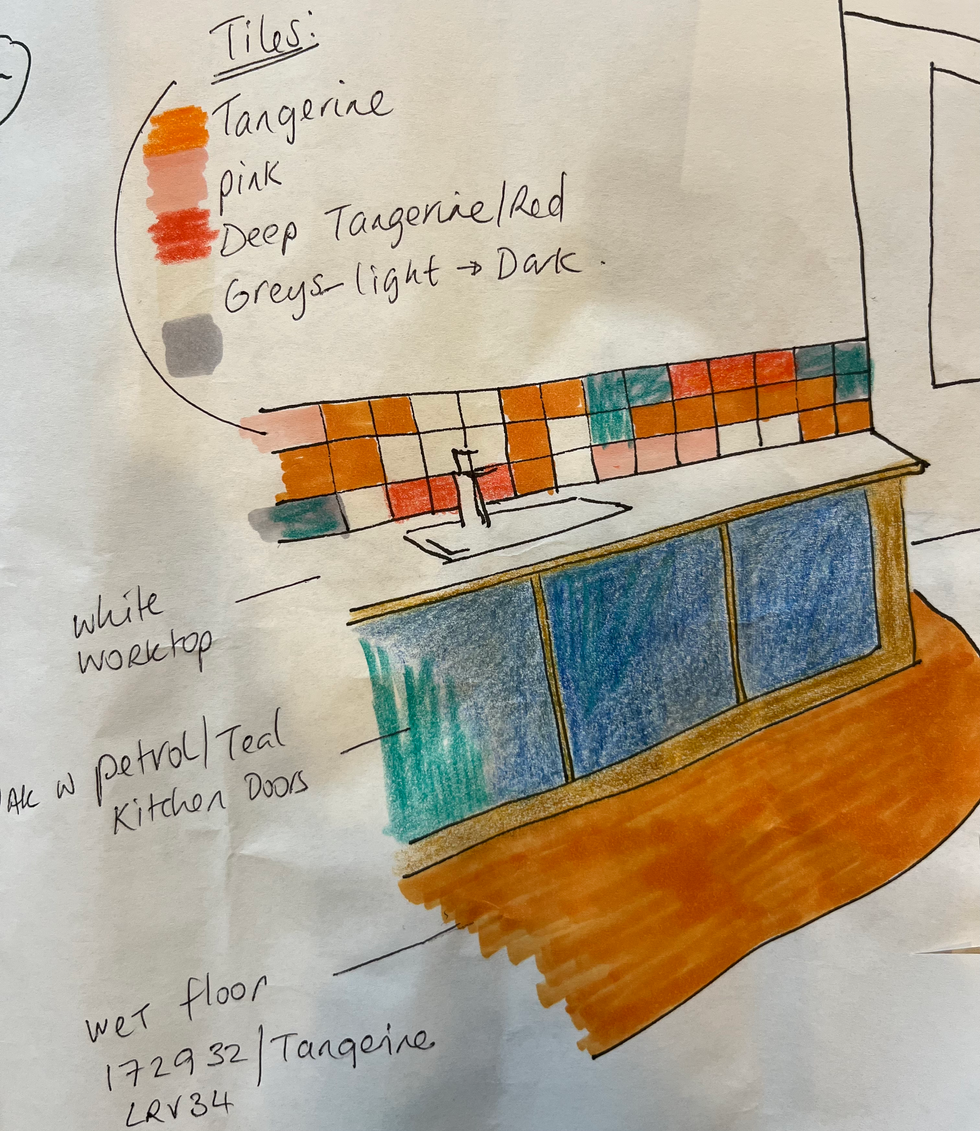 Tiles:
Tangerine
pink
Deep Tangerine/Red
Greys - light → Dark.
white
worktop
w petrol/Teal
Kitchen Doors
wet floor
172932/Tangerine
LRV34